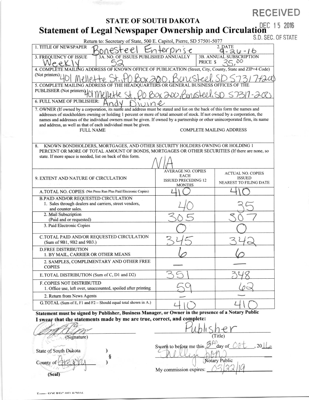 RECEIVED
DEC 15 2016
S.D. SEC. OF STATE
STATE OF SOUTH DAKOTA
Statement of Legal Newspaper Ownership and Circulation
Return to: Secretary of State, 500 E. Capitol, Pierre, SD 57501-5077
1. TITLE OF NEWSPAPER Bonesteel Enterprise
2. DATE 9-26-16
3. FREQUENCY OF ISSUE Weekly
3A. NO. OF ISSUES PUBLISHED ANNUALLY 52
3B. ANNUAL SUBSCRIPTION PRICE $ 35.00
4. COMPLETE MAILING ADDRESS OF KNOWN OFFICE OF PUBLICATION (Street, City, County, State and ZIP+4 Code)
(Not printers) 401 Mellette St, PO Box 200, Bonesteel, SD 57317-200
5. COMPLETE MAILING ADDRESS OF THE HEADQUARTERS OR GENERAL BUSINESS OFFICES OF THE
PUBLISHER (Not printers) 401 Mellette St, PO Box 200, Bonesteel SD 57317-200
6. FULL NAME OF PUBLISHER: Andy Divine
7. OWNER (If owned by corporation, its name and address must be stated and list on the back of this form the names and
addresses of stockholders owning or holding 1 percent or more of total amount of stock. If not owned by a corporation, the
names and addresses of the individual owners must be given. If owned by a partnership or other unincorporated firm, its name
and address, as well as that of each individual must be given.
FULL NAME COMPLETE MAILING ADDRESS
8. KNOWN BONDHOLDERS, MORTGAGES, AND OTHER SECURITY HOLDERS OWNING OR HOLDING 1
PERCENT OR MORE OF TOTAL AMOUNT OF BONDS, MORTGAGES OR OTHER SECURITIES (If there are none, so
state. If more space is needed, list on back of this form.
N/A
9. EXTENT AND NATURE OF CIRCULATION
AVERAGE NO. COPIES EACH ISSUED PRECEDING 12 MONTHS
ACTUAL NO. COPIES ISSUED NEAREST TO FILING DATE
A. TOTAL NO. COPIES (Net Press Run Plus Paid Electronic Copies) 410 410
B. PAID AND/OR REQUESTED CIRCULATION
1. Sales through dealers and carriers, street vendors, and counter sales. 40 35
2. Mail Subscription (Paid and or requested) 305 307
3. Paid Electronic Copies 0 0
C. TOTAL PAID AND/OR REQUESTED CIRCULATION (Sum of 9B1, 9B2 and 9B3.) 345 342
D. FREE DISTRIBUTION
1. BY MAIL, CARRIER OR OTHER MEANS 6 6
2. SAMPLES, COMPLIMENTARY AND OTHER FREE COPIES
E. TOTAL DISTRIBUTION (Sum of C, D1 and D2) 351 348
F. COPIES NOT DISTRIBUTED
1. Office use, left over, unaccounted, spoiled after printing 59 62
2. Return from News Agents
G. TOTAL (Sum of E, F1 and F2 - Should equal total shown in A.) 410 410
Statement must be signed by Publisher, Business Manager, or Owner in the presence of a Notary Public
I swear that the statements made by me are true, correct, and complete:
Publisher
(Signature) (Title)
State of South Dakota )
Sworn to before me this day of Oct, 2016
County of Gregory )
Notary Public
(Seal) My commission expires: